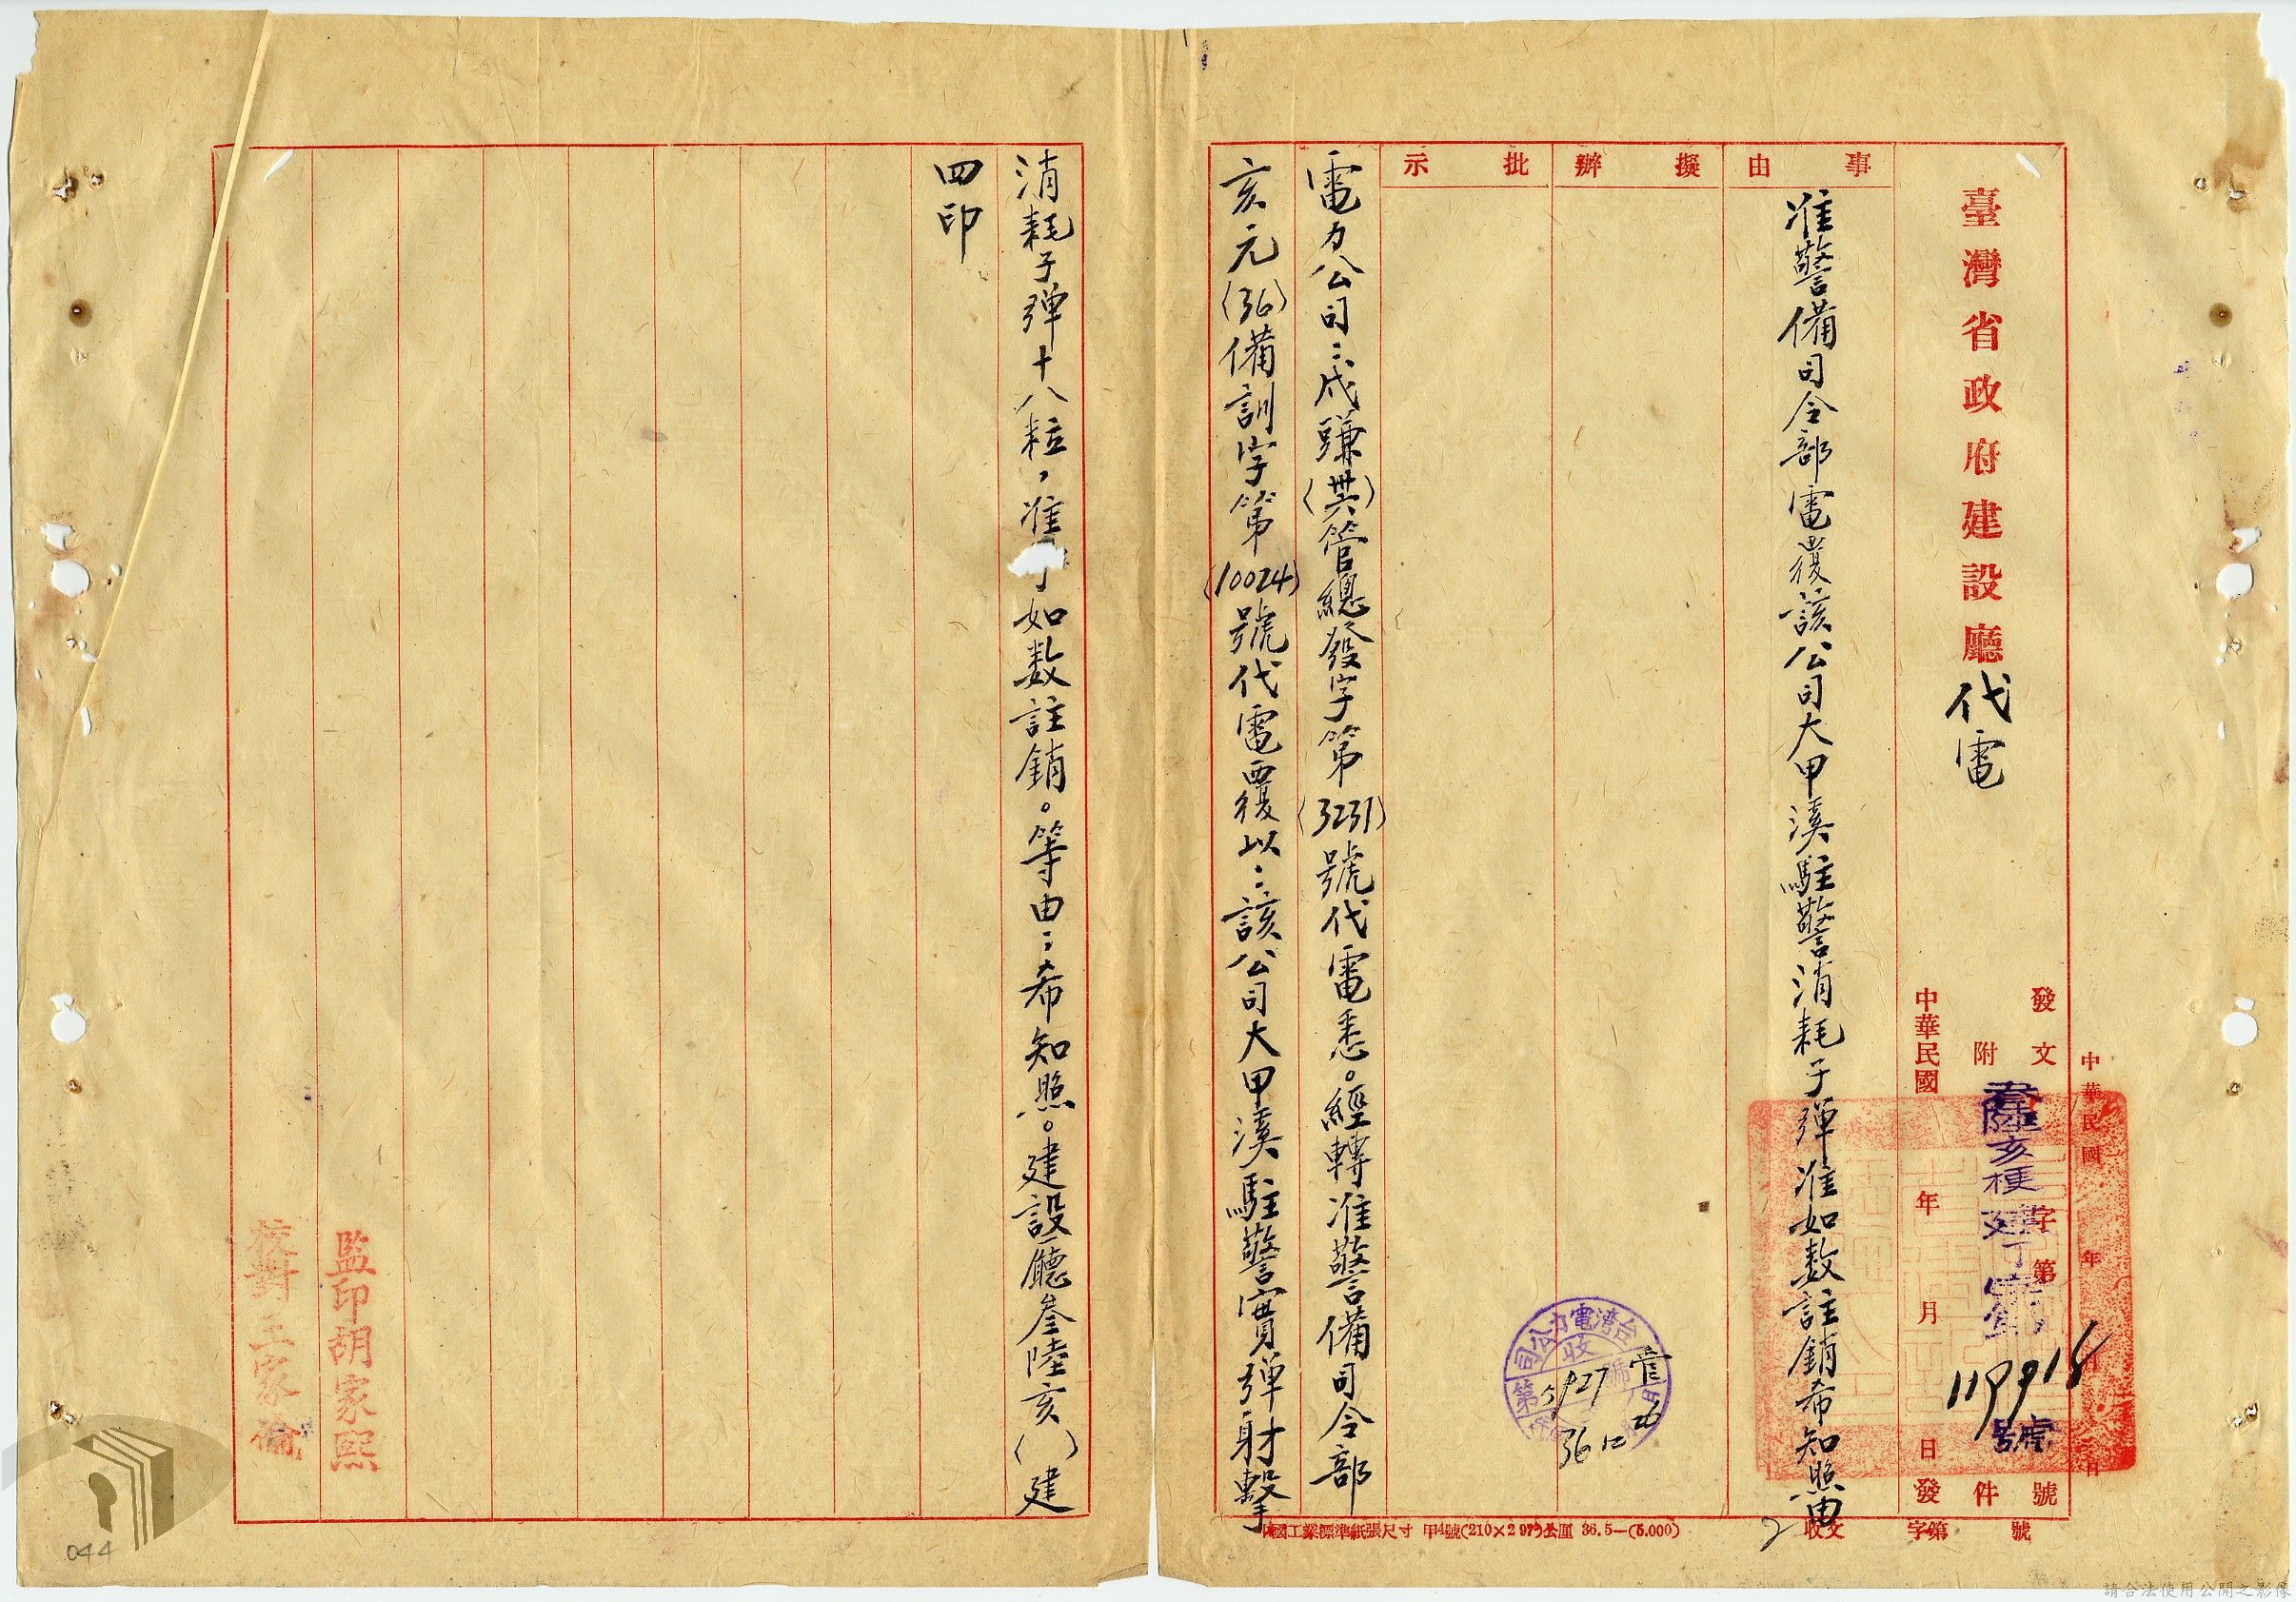 臺灣省政府建設廳代電
發文 字第 號
附 件
中華民國 年 月 日發
中華民國 年 月 日
叁陸亥梗建丁
119918
號
事由
准警備司令部電覆該公司大甲溪駐警消耗子彈准如数註銷希知照由
擬辦
批示
台湾電力公司
收
第5927號
36 12
電力公司：戌謙(卅六)管總發字第(3231)號代電悉。經轉准警備司令部
亥元(36)備訓字第(10024)號代電覆以：該公司大甲溪駐警實彈射擊
消耗子弹十八粒，准予如数註銷。等由；希知照。建設廳叁陸亥( )建
四印
監印胡家熙
校對王家倫
中國工業標準紙張尺寸 甲4號(210×297)公厘 36.5—(5.000)
收文 字第 號
044
請合法使用公開之影像